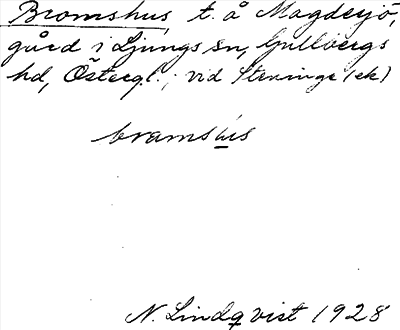 Bromshus, t. å Magdesjö,
gård i Ljungs sn, Gullbergs
hd, Östergl.; vid Steninge (ek)
bramshùs
N. Lindqvist 1928